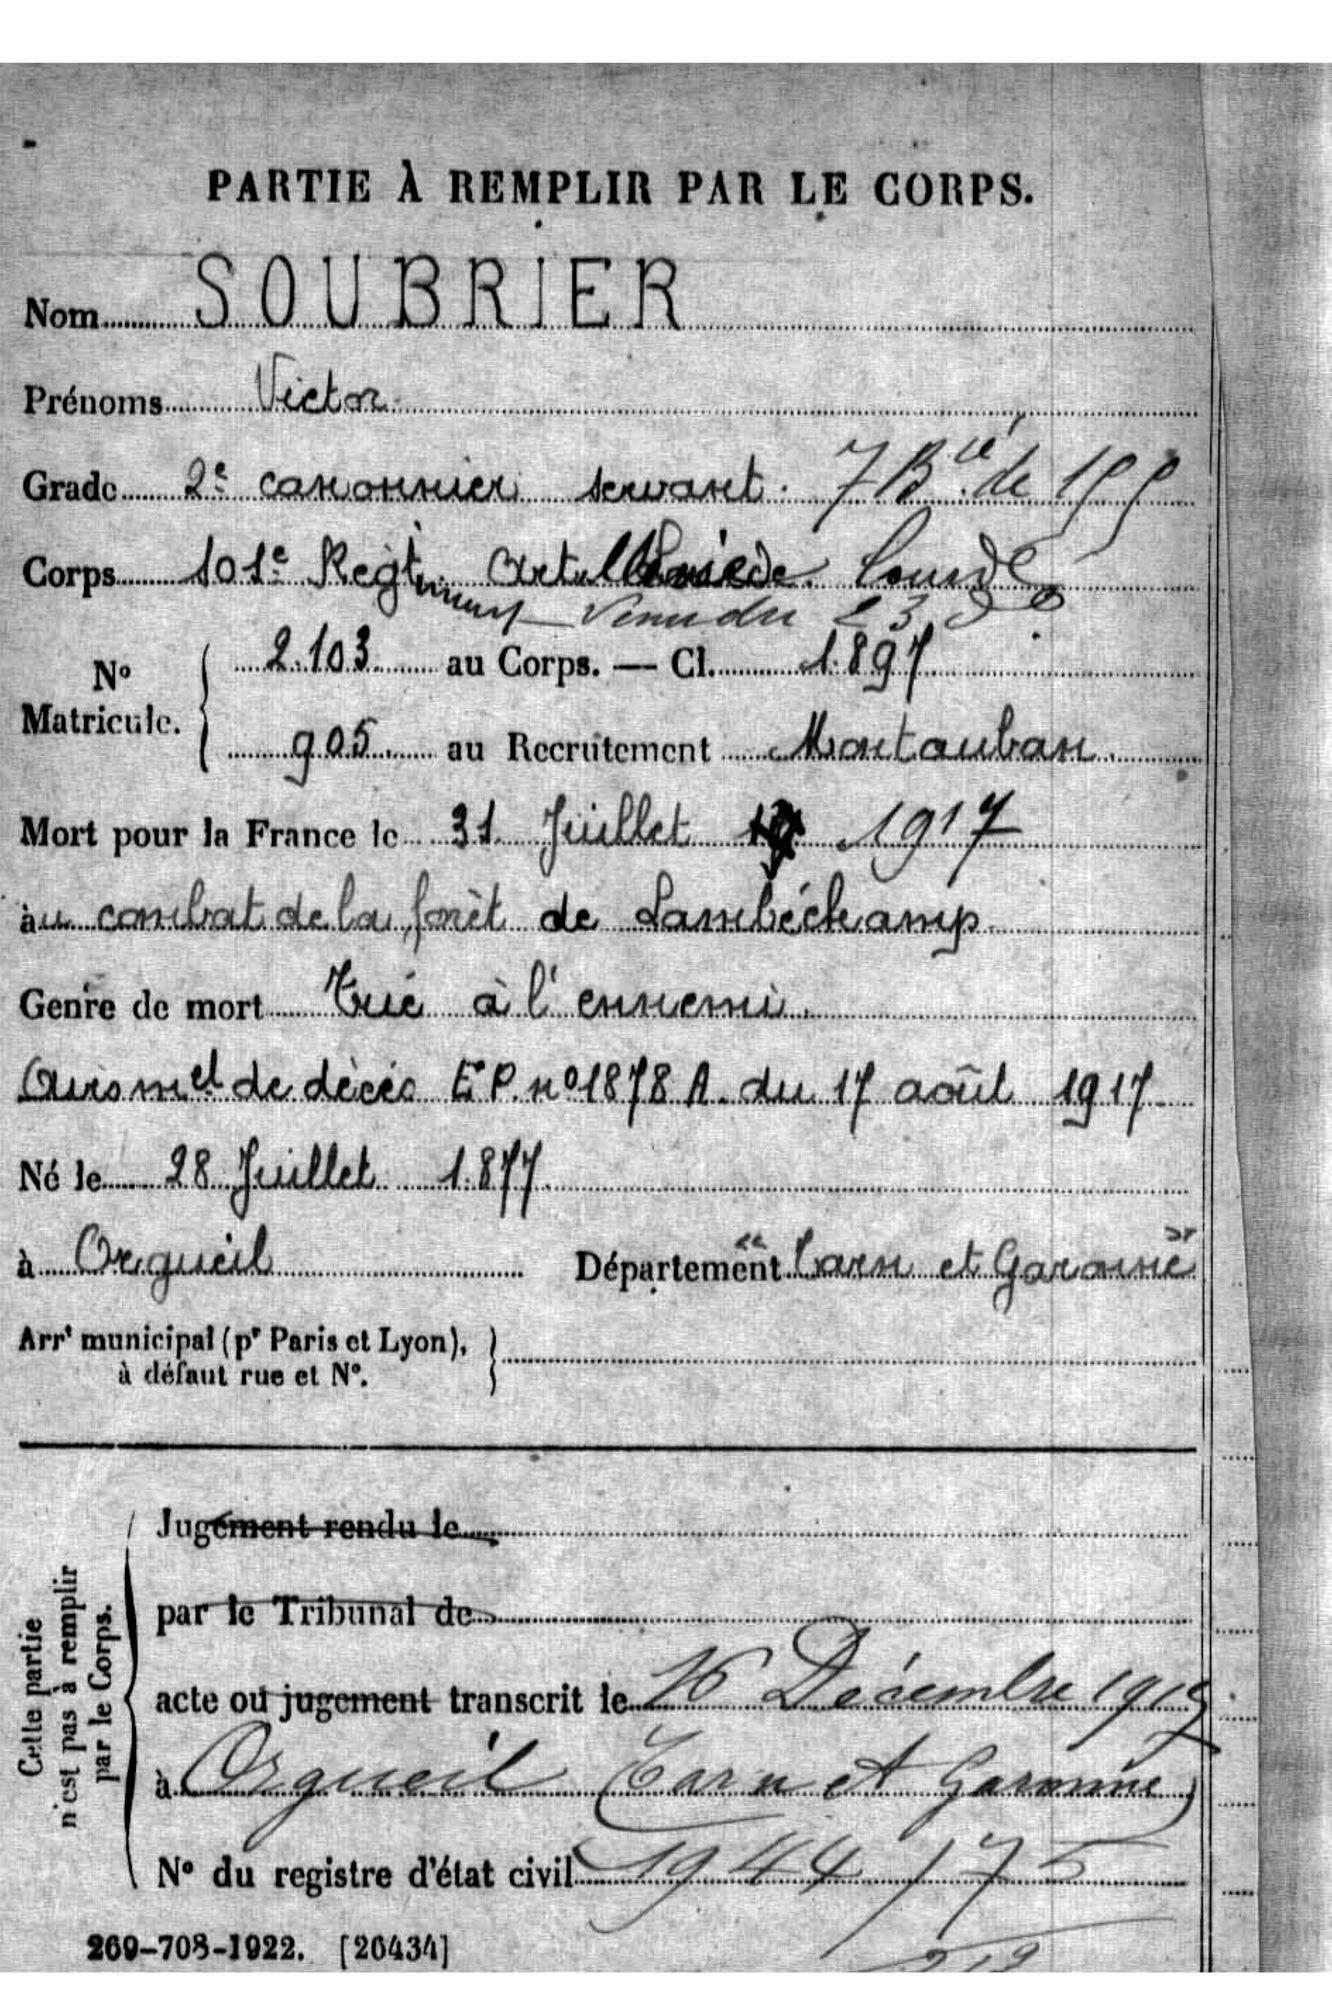 PARTIE À REMPLIR PAR LE CORPS.
Nom SOUBRIER
Prénoms Victor
Grade 2e canonnier servant. 7 Bie de 155
Corps 101e Régt Artillerie Lourde
Venu du 23
No Matricule. 2.103 au Corps. — Cl. 1897
905 au Recrutement Montauban
Mort pour la France le 31 Juillet 1917
au combat de la forêt de Lambéchamp
Genre de mort Tué à l'ennemi.
Avis mel de décès E.P. no 1878 A. du 17 août 1917
Né le 28 Juillet 1877
à Orgueil Département Tarn et Garonne
Arrt municipal (pr Paris et Lyon),
à défaut rue et No.
Cette partie
n'est pas à remplir
par le Corps.
Jugement rendu le
par le Tribunal de
acte ou jugement transcrit le 16 Décembre 1917
à Orgueil (Tarn et Garonne)
No du registre d'état civil 1944/75
269-708-1922. [26434]